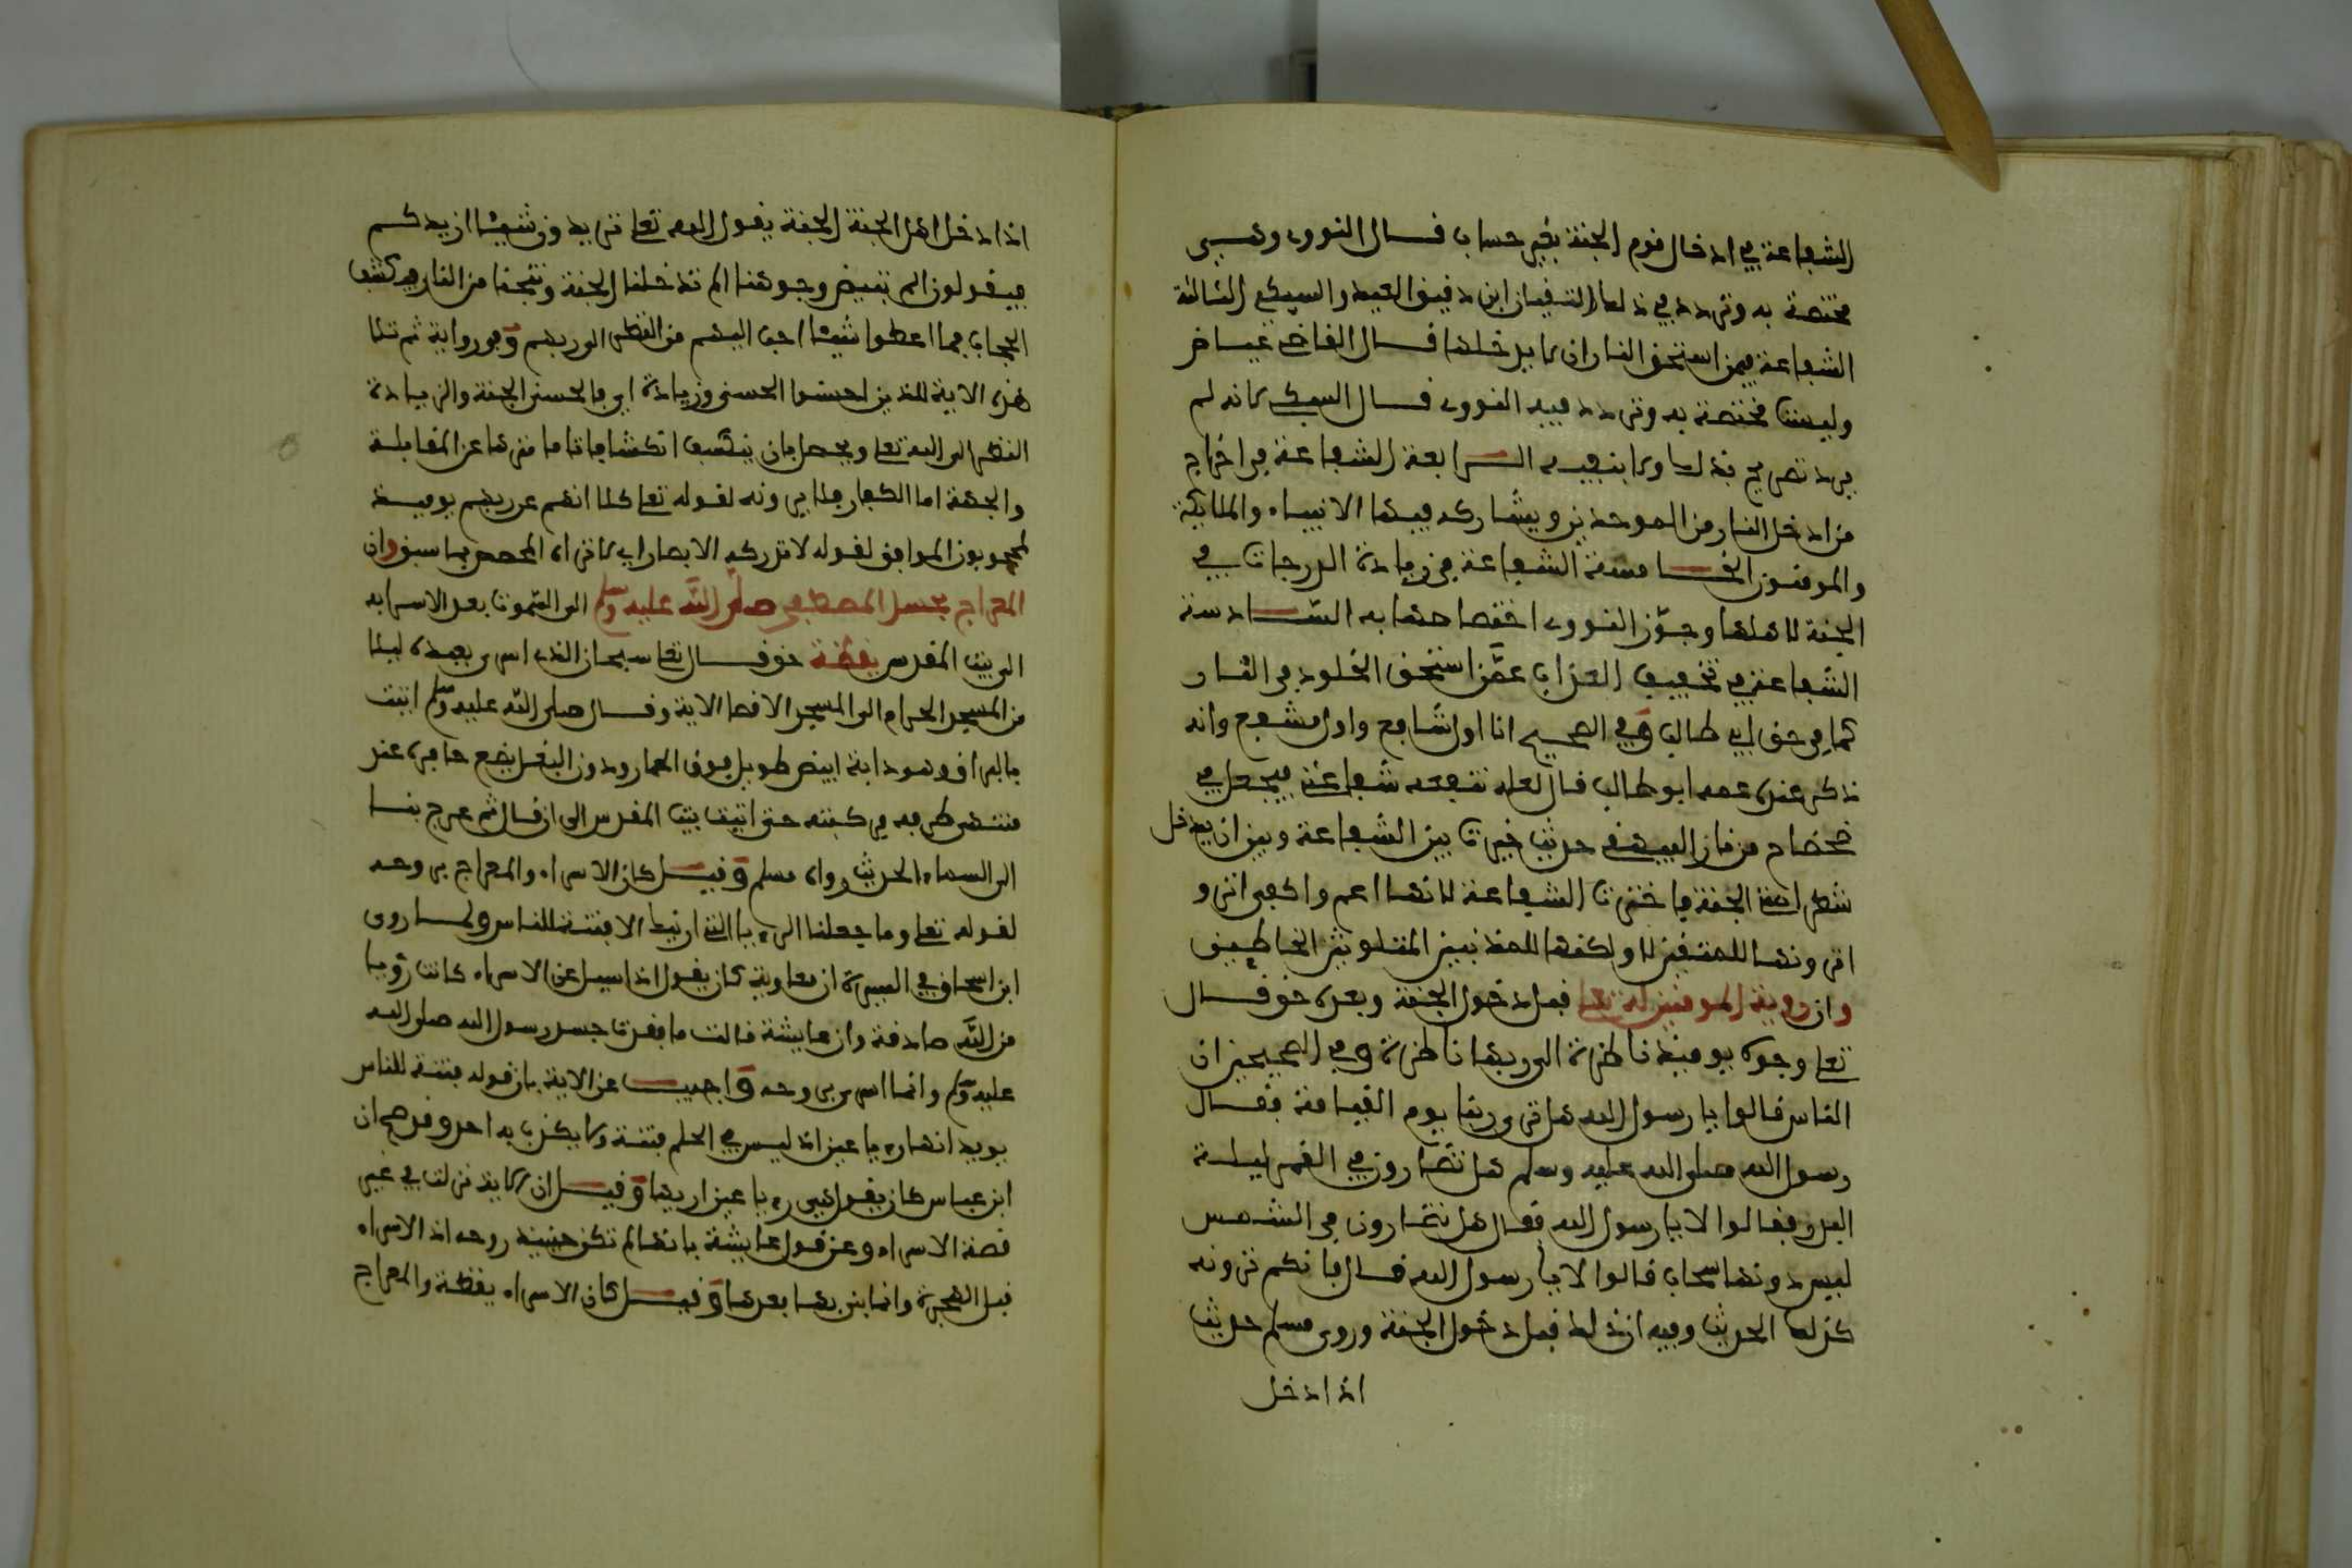 الشفاعة في ادخال قوم الجنة بغير حساب قال النووي وهـــي
مختصة به وتردد في ذلك التقيان ابن دقيق العيد والسبكي الثالثة
الشفاعة فيمن استحق النار ان لا يدخلها قال القاضي عياض
وليست مختصة به وتردد فيه النووي قال السبكي لانه لم
يرد تصريح بذلك ولا بنفيه الرابعة الشفاعة في اخراج
من ادخل النار من الموحدين ويشاركه فيها الانبياء والملائكة
والمومنون الخامسة الشفاعة في زيادة الدرجات في
الجنة لاهلها وجوّز النووي اختصاصها به السّادسة
الشفاعة في تخفيف العذاب عمّن استحق الخلود في النار
كما في حق ابي طالب وفي الصحيح انا اول شافع واول مشفع وانه
ذكر عنده عمه ابو طالب فقال لعله تنفعه شفاعتي فيجعل في
ضحضاح من نار البيهقي حديث خيرت بين الشفاعة وبين ان يدخل
شطر امتي الجنة فاخترت الشفاعة لانها اعم واكفى اترو
اترونها للمتقين لا ولكنها للمذنبين المتلوثين الخاطيين
وان روية المومنين له تعلى قبل دخول الجنة وبعده حق قال
تعلى وجوه يوميذ ناضرة الى ربها ناظرة وفي الصحيحين ان
الناس قالوا يا رسول الله هل نرى ربنا يوم القيامة فقال
رسول الله صلى الله عليه وسلم هل تضارون في القمر ليلة
البدر فقالوا لا يا رسول الله فقال هل تضارون في الشمس
ليس دونها سحاب قالوا لا يا رسول الله قال فانكم ترونه
كذلك الحديث وفيه ان ذلك قبل دخول الجنة وروى مسلم حديث
اذا دخل
اذا دخل اهل الجنة الجنة يقول الله تعلى تريدون شيئا ازيدكم
فيقولون الم تبيض وجوهنا الم تدخلنا الجنة وتنجنا من النار فيكشف
الحجاب فما اعطوا شيئا احب اليهم من النظر الى ربهم وفي رواية ثم تلا
هذه الاية للذين احسنوا الحسنى وزيادة اي فالحسنى الجنة والزيادة
النظر الى الله تعلى ويحصل بان ينكشف انكشافا تاما منزها عن المقابلة
والجهة اما الكفار فلا يرونه لقوله تعلى كلا انهم عن ربهم يوميذ
لمحجوبون الموافق لقوله لا تدركه الابصار اي لا تراه المخصص بما سبق وان
المعراج بجسد المصطفى صلى اللّه عليه وسلم الى السموت بعد الاسرا به
الى بيت المقدس يقظة حق قال تعلى سبحان الذي اسرى بعبده ليلا
من المسجد الحرام الى المسجد الاقصا الاية وقال صلى اللّه عليه وسلم اتيت
بالبراق وهو دابة ابيض طويل فوق الحمار ودون البغل يضع حافره عند
منتهى طرفه فركبته حتى اتيت بيت المقدس الى ان قال ثم عرج بنا
الى السماء الحديث رواه مسلم وقيل كان الاسراء والمعراج بروحه
لقوله تعلى وما جعلنا الرءيا التي اريناك الا فتنة للناس ولما روى
ابن اسحاق في السيرة ان معاوية كان يقول اذا سيل عن الاسراء كانت رؤيا
من اللّه صادقة وان عايشة قالت ما فقدت جسد رسول الله صلى الله
عليه وسلم وانما اسري بروحه واجيب عن الاية بان قوله فتنة للناس
يويد انها رءيا عين اذ ليس في الحلم فتنة ولا يكذب به احد وقد صح ان
ابن عباس كان يقول هي رءيا عين اريها وقيل ان الاية نزلت في غير
قصة الاسراء وعن قول عايشة بانها لم تكن حينيذ زوجه اذ الاسراء
قبل الهجرة وانما بنى بها بعدها وقيل كان الاسراء يقظة والمعراج